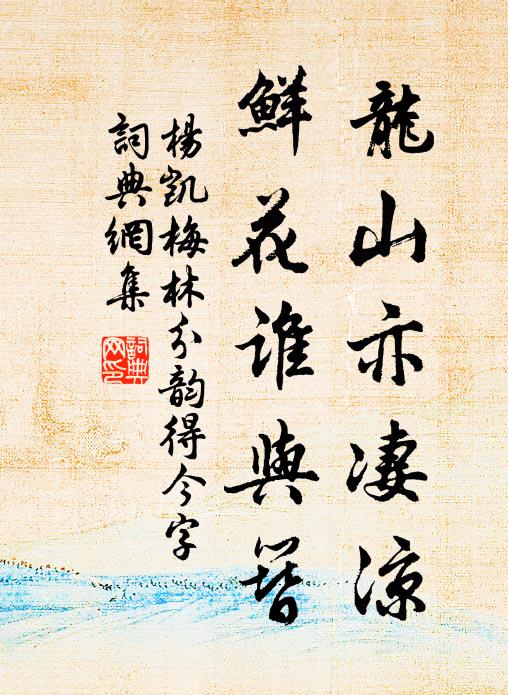 龍山亦凄涼
鮮花誰與簪
楊凱梅林分韵得今字
詞典網集
詞典網印